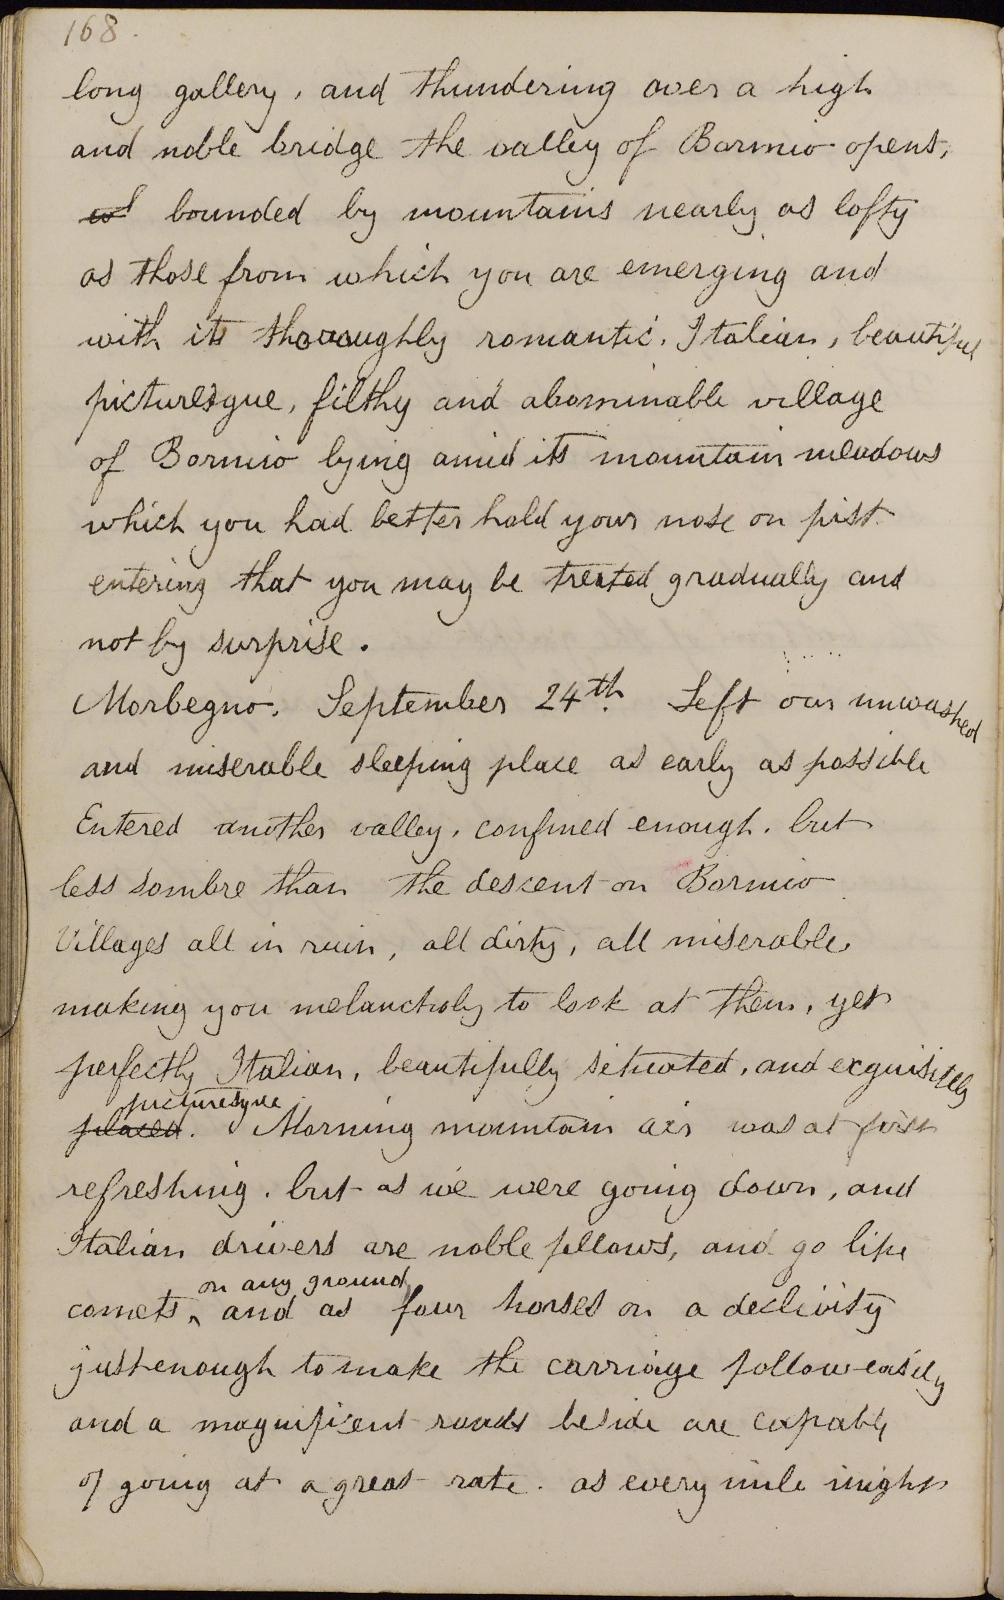 168.
long gallery, and thundering over a high
and noble bridge the valley of Bormio opens,
bounded by mountains nearly as lofty
as those from which you are emerging and
with its thoroughly romantic, Italian, beautiful
picturesque, filthy and abominable village
of Bormio lying amid its mountain meadows
which you had better hold your nose on first
entering that you may be treated gradually and
not by surprise.
Morbegno. September 24th. Left our unwashed
and miserable sleeping place as early as possible
Entered another valley, confined enough, but
less sombre than the descent on Bormio
Villages all in ruin, all dirty, all miserable
making you melancholy to look at them, yet
perfectly Italian, beautifully situated, and exquisitely
picturesque
placed. Morning mountain air was at first
refreshing, but as we were going down, and
Italian drivers are noble fellows, and go like
on any ground
comets, and as four horses on a declivity
just enough to make the carriage follow easily
and a magnificent roads beside are capable
of going at a great rate. as every mile might